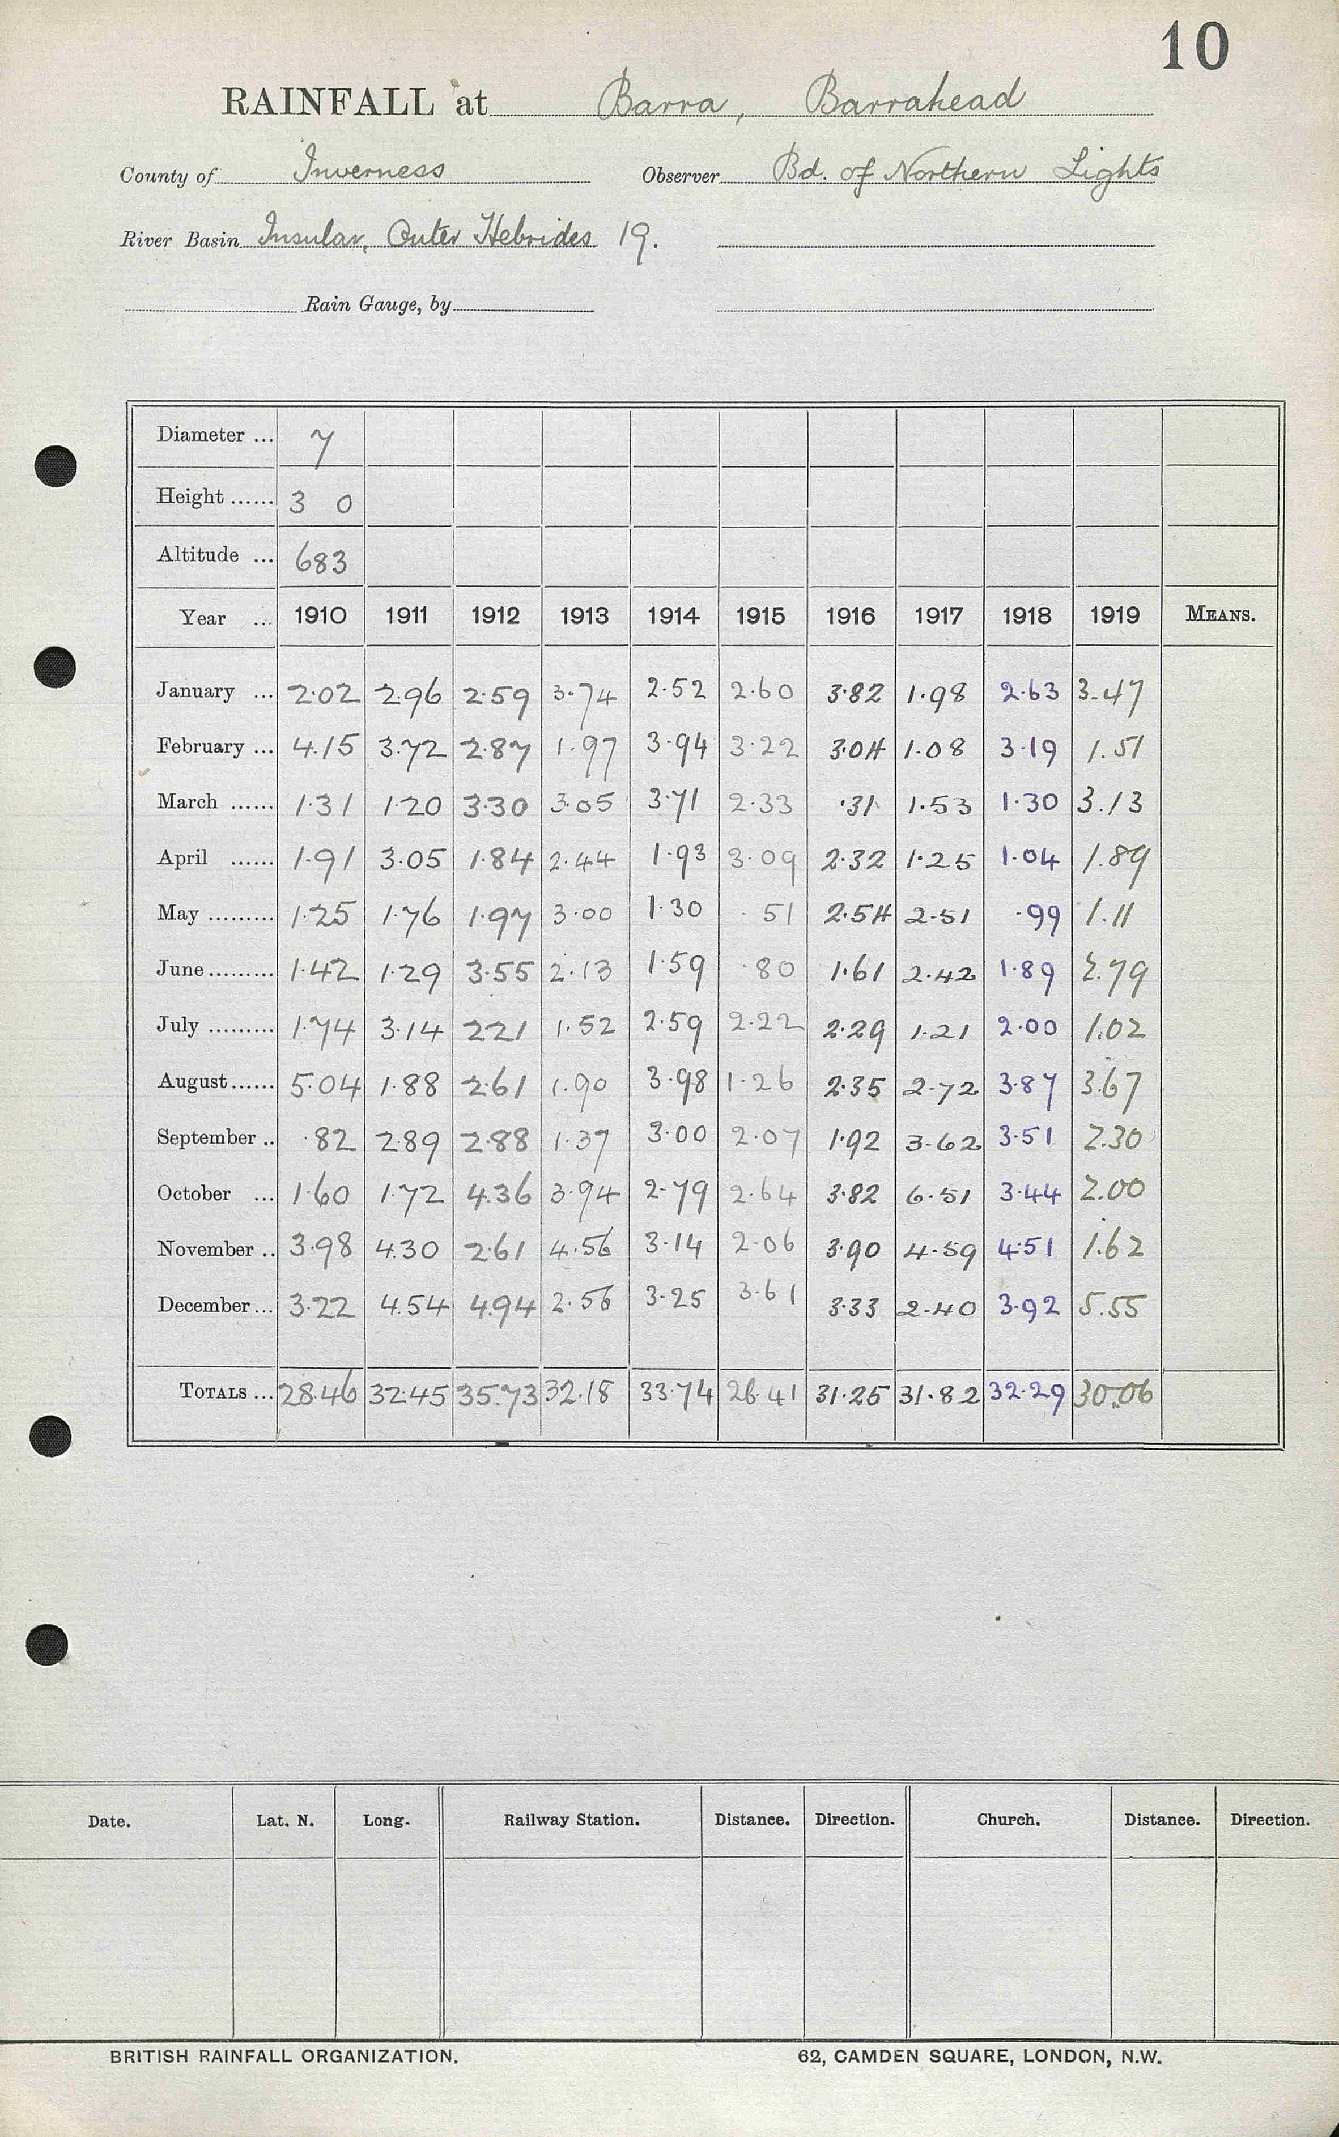 10
RAINFALL at Barra, Barrahead
County of Inverness Observer Bd. of Northern Lights
River Basin Insular, Outer Hebrides 19.
Rain Gauge, by
Diameter ... 7
Height ...... 3 0
Altitude ... 683
Year ... 1910 1911 1912 1913 1914 1915 1916 1917 1918 1919 MEANS.
January ... 2.02 2.96 2.59 3.74 2.52 2.60 3.82 1.98 2.63 3.47
February ... 4.15 3.72 2.87 1.97 3.94 3.22 3.04 1.08 3.19 1.51
March ...... 1.31 1.20 3.30 3.05 3.71 2.33 .31 1.53 1.30 3.13
April ...... 1.91 3.05 1.84 2.44 1.93 3.09 2.32 1.25 1.04 1.89
May ......... 1.25 1.76 1.97 3.00 1.30 .51 2.54 2.51 .99 1.11
June ......... 1.42 1.29 3.55 2.13 1.59 .80 1.61 2.42 1.89 2.79
July ......... 1.74 3.14 2.21 1.52 2.59 2.22 2.29 1.21 2.00 1.02
August ...... 5.04 1.88 2.61 1.90 3.98 1.26 2.35 2.72 3.87 3.67
September .. .82 2.89 2.88 1.37 3.00 2.07 1.92 3.62 3.51 2.30
October ... 1.60 1.72 4.36 3.94 2.79 2.64 3.82 6.51 3.44 2.00
November .. 3.98 4.30 2.61 4.56 3.14 2.06 3.90 4.59 4.51 1.62
December ... 3.22 4.54 4.94 2.56 3.25 3.61 3.33 2.40 3.92 5.55
TOTALS ... 28.46 32.45 35.73 32.18 33.74 26.41 31.25 31.82 32.29 30.06
Date. Lat. N. Long. Railway Station. Distance. Direction. Church. Distance. Direction.
BRITISH RAINFALL ORGANIZATION. 62, CAMDEN SQUARE, LONDON, N.W.